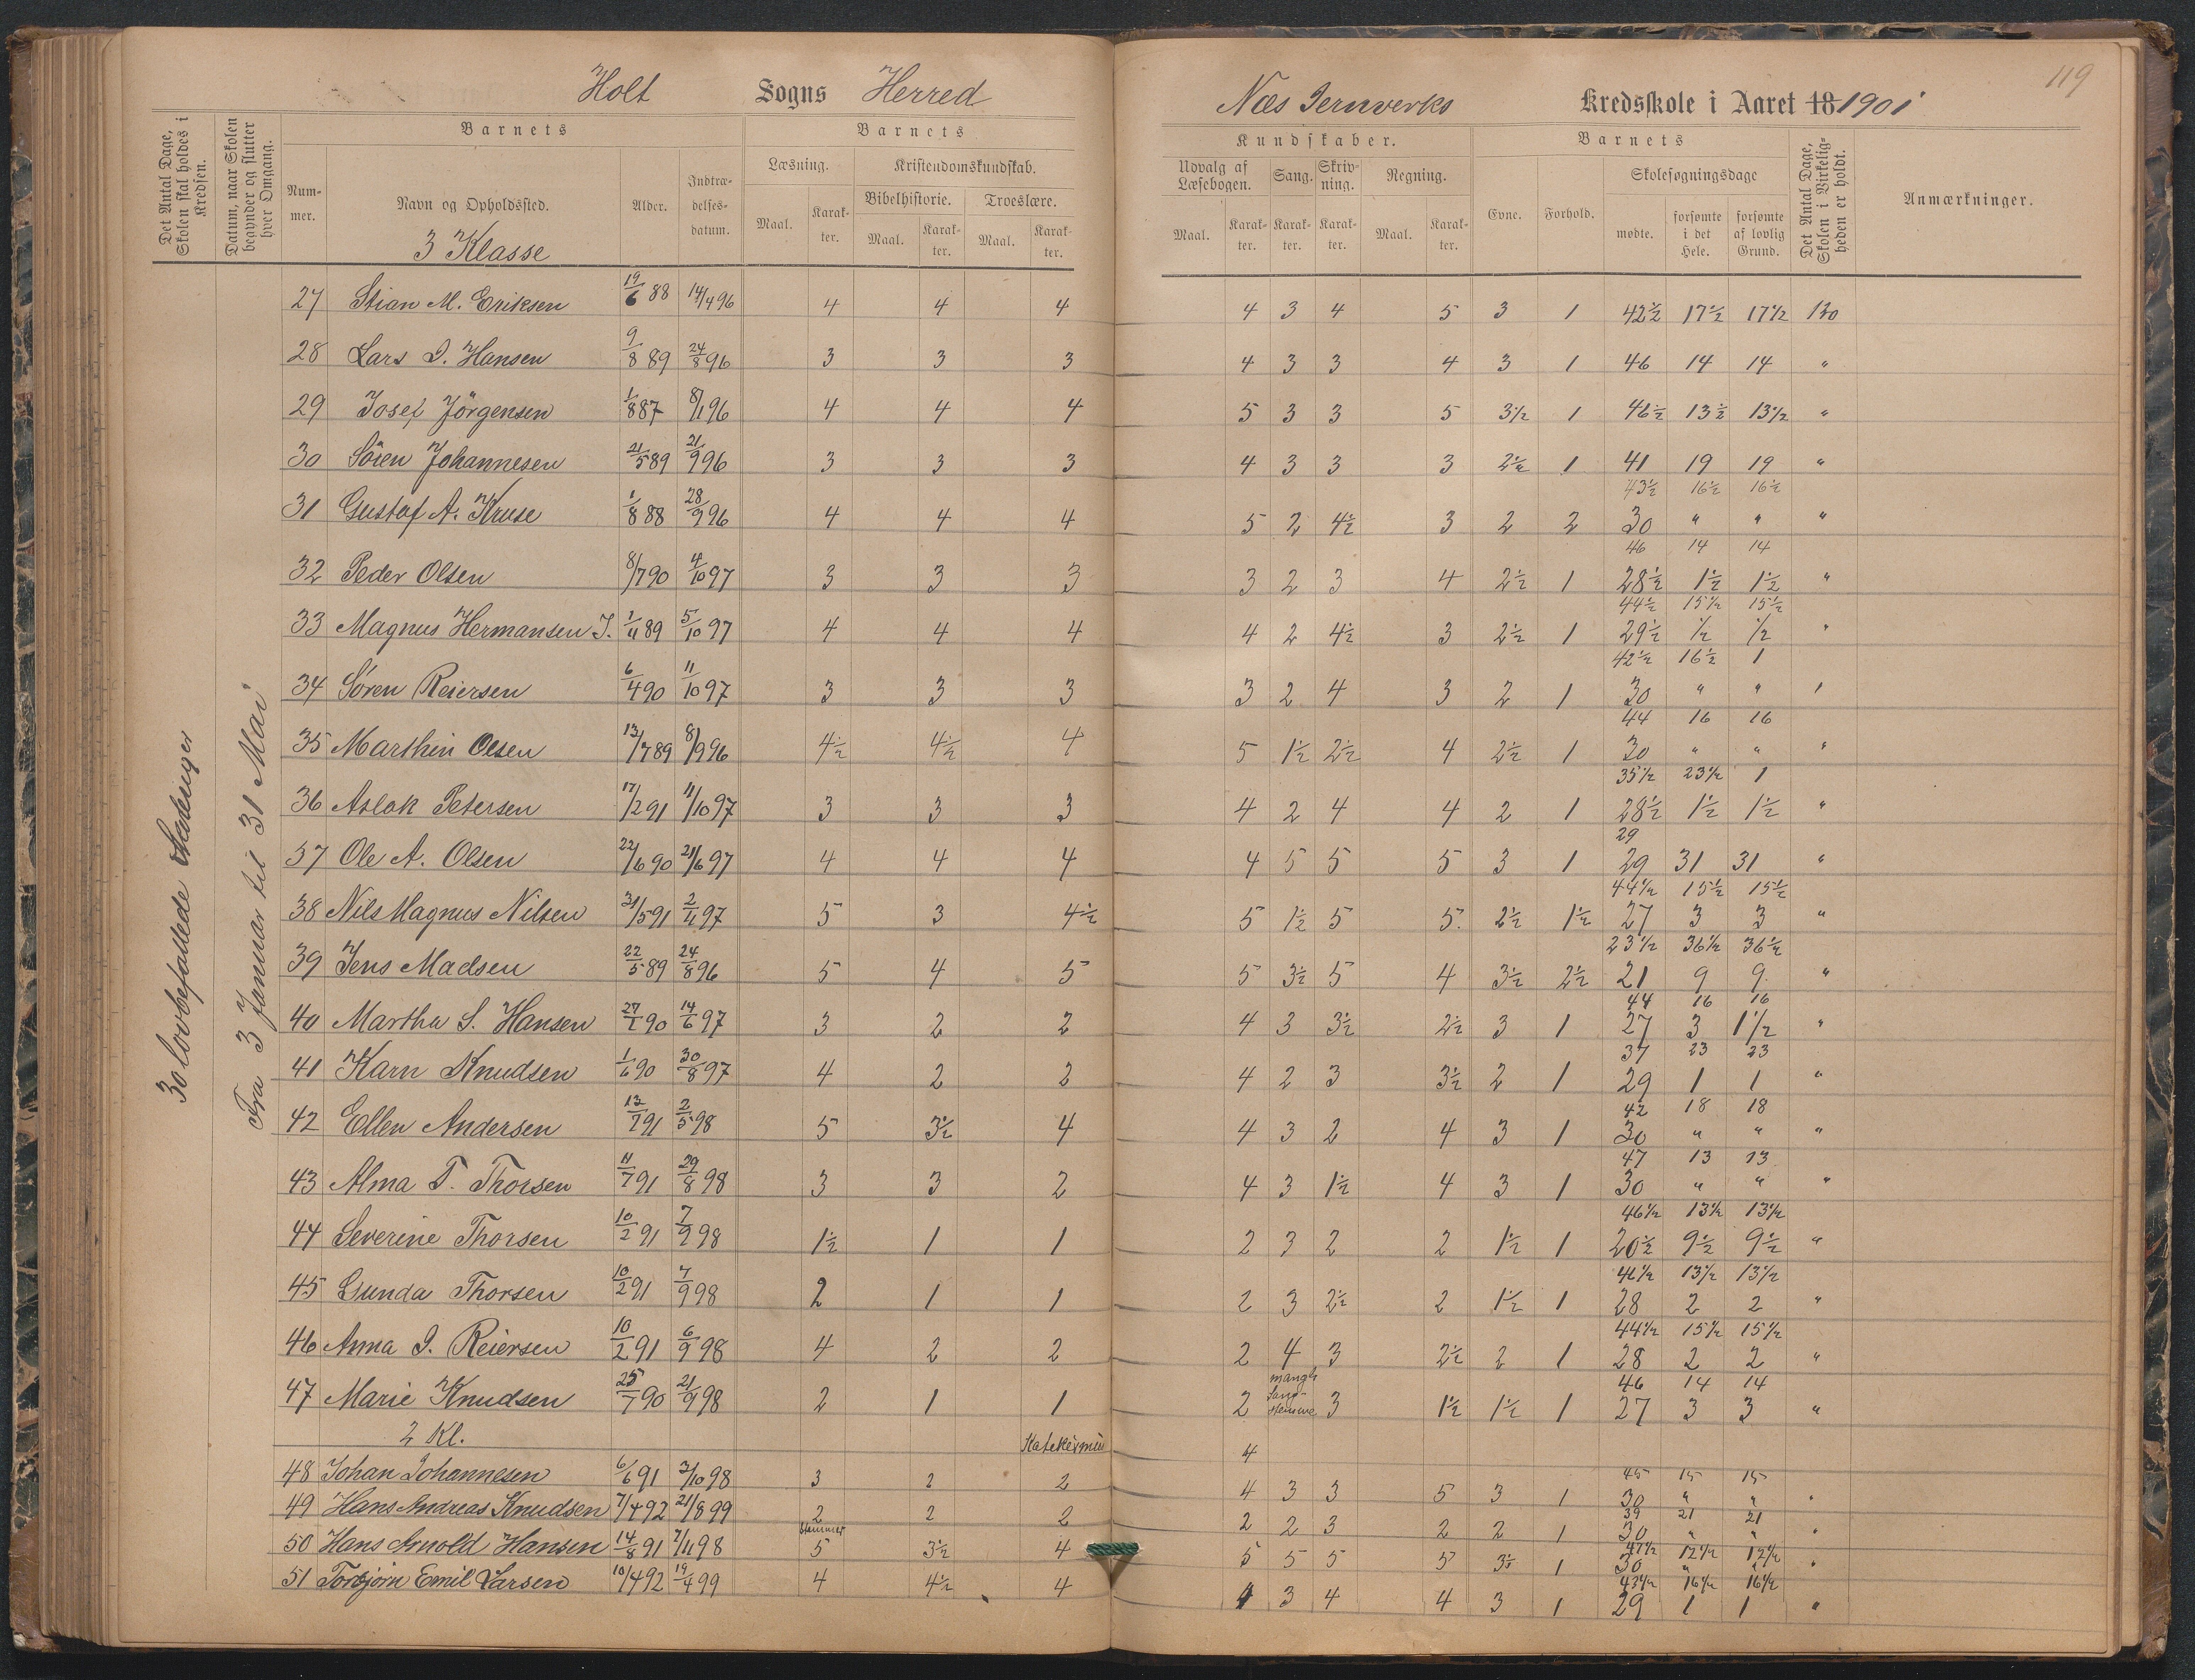 119
Holt Sogns Herred
Næs Jernverks Kredsskole i Aaret 18 1901
Det Antal Dage, Skolen skal holdes i Kredsen.
Datum, naar Skolen begynder og slutter hver Omgang.
Barnets
Num-mer. Navn og Opholdssted. Alder. Indtræ-delses-datum.
3 Klasse
Barnets
Læsning. Kristendomskundskab.
Bibelhistorie. Troeslære.
Maal. Karak-ter. Maal. Karak-ter. Maal. Karak-ter.
Kundskaber.
Udvalg af Læsebogen. Sang. Skriv-ning. Regning.
Maal. Karak-ter. Karak-ter. Karak-ter. Maal. Karak-ter.
Barnets
Evne. Forhold. Skolesøgningsdage
mødte. forsømte i det Hele. forsømte af lovlig Grund.
Det Antal Dage, Skolen i Virkelig-heden er holdt.
Anmærkninger.
30 lovbefalede
Fra 3 Januar til 31 Mai
27 Stian M. Eriksen 19/6 88 14/4 96 4 4 4 4 3 4 5 3 1 42½ 17½ 17½ 120
28 Lars I. Hansen 9/8 89 24/8 96 3 3 3 4 3 3 4 3 1 46 14 14 "
29 Josef Jörgensen 1/8 87 8/1 96 4 4 4 5 3 3 5 3½ 1 46½ 13½ 13½ "
30 Sören Johannesen 21/5 89 21/9 96 3 3 3 4 3 3 3 2½ 1 41 19 19 "
43½ 16½ 16½
31 Gustaf A. Kruse 1/8 88 28/9 96 4 4 4 5 2 4½ 3 2 2 30 " " "
46 14 14
32 Peder Olsen 8/7 90 4/10 97 3 3 3 3 2 3 4 2½ 1 28½ 1½ 1½ "
44½ 15½ 15½
33 Magnus Hermansen J. 1/11 89 5/10 97 4 4 4 4 2 4½ 3 2½ 1 29½ ½ ½ "
42½ 16½ 1
34 Søren Reiersen 6/4 90 11/10 97 3 3 3 3 2 4 3 2 1 30 " " "
44 16 16
35 Marthin Olsen 13/7 89 8/9 96 4½ 4½ 4 5 1½ 2½ 4 2½ 1 30 " " "
35½ 23½ 1
36 Aslak Petersen 17/2 91 11/10 97 3 3 3 4 2 4 4 2 1 28½ 1½ 1½ "
29
37 Ole A. Olsen 22/6 90 21/6 97 4 4 4 4 5 5 5 3 1 29 31 31 "
44½ 15½ 15½
38 Nils Magnus Nilsen 31/5 91 2/11 97 5 3 4½ 5 1½ 5 5. 2½ 1½ 27 3 3 "
23½ 36½ 36½
39 Jens Madsen 22/5 89 24/8 96 5 4 5 5 3½ 5 4 3½ 2½ 21 9 9. "
44 16 16
40 Martha S. Hansen 27/1 90 14/6 97 3 2 2 4 3 3½ 2½ 3 1 27 3 1½ "
37 23 23
41 Karn Knudsen 1/6 90 30/8 97 4 2 2 4 2 3 3½ 2 1 29 1 1 "
42 18 18
42 Ellen Andersen 13/7 91 2/5 98 5 3½ 4 4 3 2 4 3 1 30 " " "
47 13 13
43 Alma T. Thorsen 11/7 91 29/8 98 3 3 2 4 3 1½ 4 3 1 30 " " "
46½ 13½ 13½
44 Severine Thorsen 10/2 91 7/9 98 1½ 1 1 2 3 2 2 1½ 1 20½ 9½ 9½ "
46½ 13½ 13½
45 Gunda Thorsen 10/2 91 7/9 98 2 1 1 2 3 2½ 2 1½ 1 28 2 2 "
44½ 15½ 15½
46 Anna I. Reiersen 10/2 91 6/9 98 4 2 2 2 4 3 2½ 2 1 28 2 2 "
46 14 14
47 Marie Knudsen 25/7 90 21/9 98 2 1 1 2 mangl. Sang-stemme 3 1½ 1½ 1 27 3 3 "
2 Kl. 4
45 15 15
48 Johan Johannesen 6/6 91 3/10 98 3 2 2 4 3 3 5 3 1 30 " " "
39 21 21
49 Hans Andreas Knudsen 7/4 92 21/8 99 2 2 2 2 2 3 2 2 1 30 " " "
47½ 12½ 12½
50 Hans Arnold Hansen 14/8 91 7/11 98 5 3½ 4 5 5 5 5 3½ 1 30 " "
43½ 16½ 16½
51 Torbjørn Emil Larsen 10/4 92 19/4 99 4 4½ 4 4 3 4 4 3 1 29 1 1 "